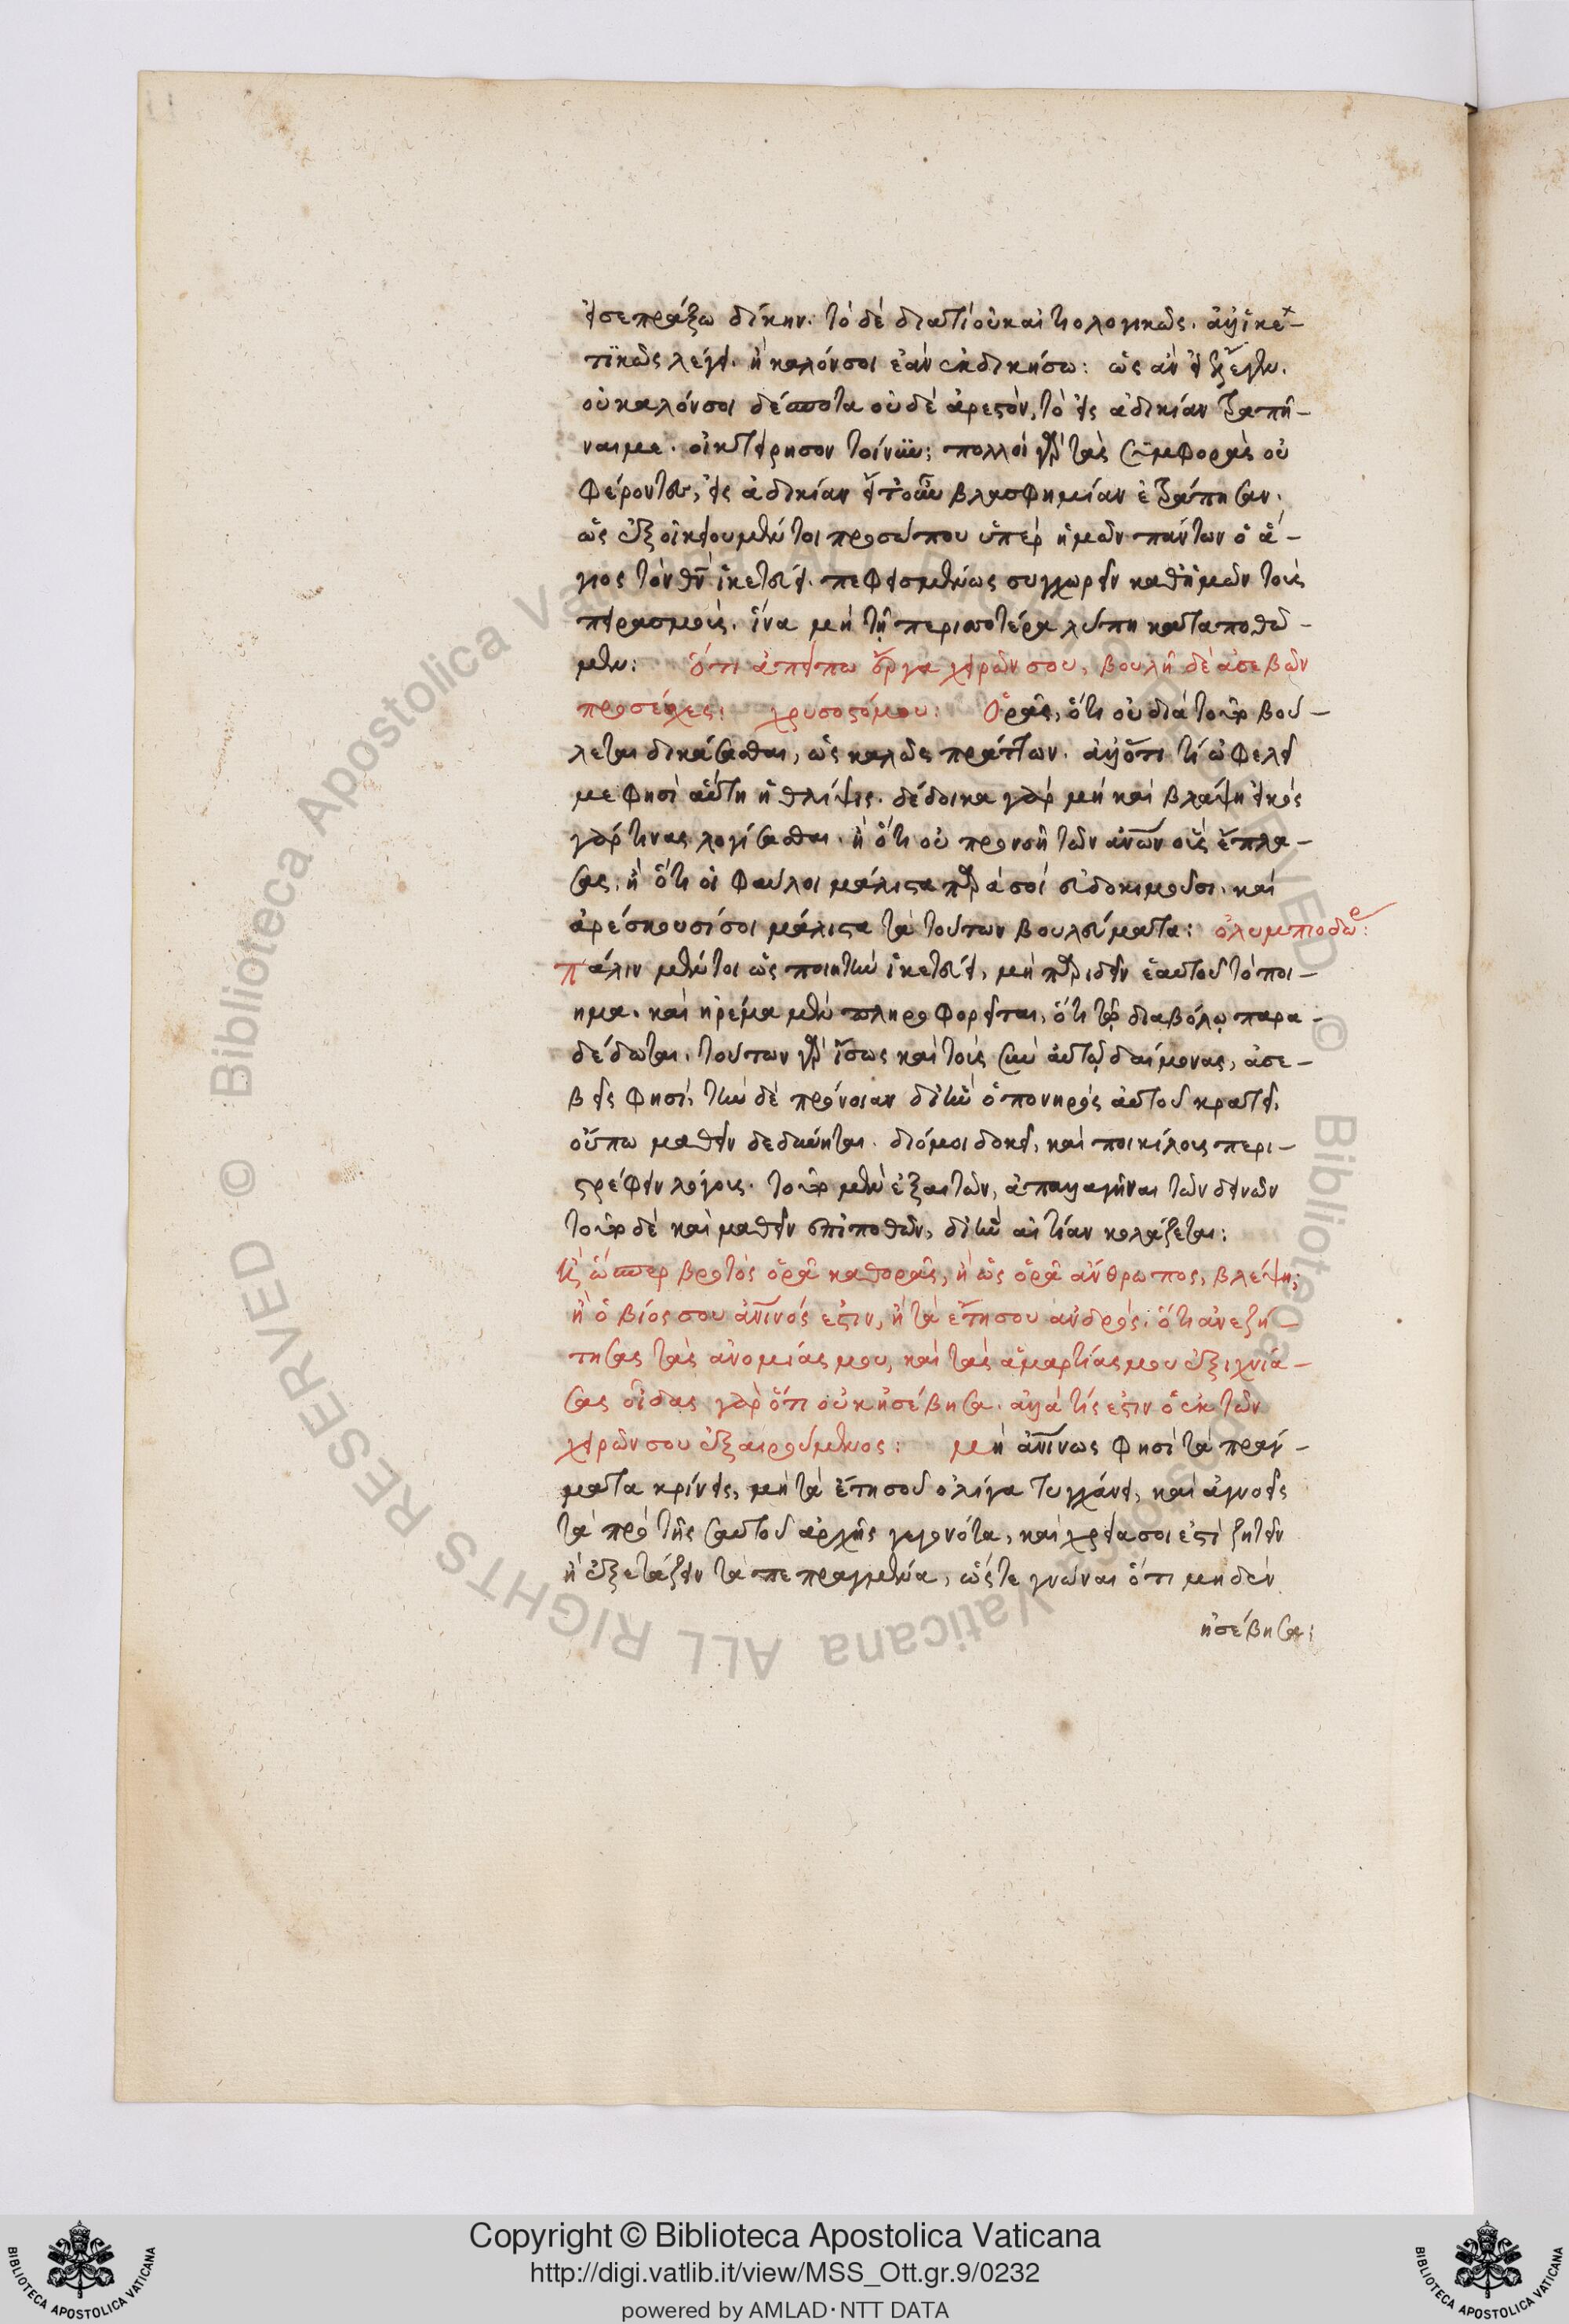 εἰσεπράξω δίκην. τὸ δὲ διατί οὐκ αἰτιολογικῶς. ἀλλ' ἱκε-
τικῶς λέγει. ἢ καλόν σοι ἐὰν ἐκδικήσω: ὡς ἂν εἰ ἔλεγεν.
οὐ καλόν σοι δέσποτα οὐδὲ ἀρεστὸν, τὸ εἰς ἀδικίαν τραπῆ-
ναι με. οἰκτείρησον τοίνυν: πολλοὶ γὰρ τὰς συμφορὰς οὐ
φέροντες, εἰς ἀδικίαν βλασφημίαν ἐτράπησαν.
ὡς ἐξ οἰκείου μέντοι προσώπου ὑπὲρ ἡμῶν πάντων ὁ ἅ-
γιος τὸν θν ἱκετεύει. πεφεισμένως συγχωρεῖν καθ' ἡμῶν τοῖς
πειρασμοῖς. ἵνα μὴ τῇ περισσοτέρᾳ λύπῃ καταποθῶ-
μεν: ὅτι ἀπείπω ἔργα χειρῶν σου, βουλῇ δὲ ἀσεβῶν
προσέσχες: χρυσοστόμου: Ὁρᾷς, ὅτι οὐ διὰ τοῦτο βού-
λεται δικάσασθαι, ὡς καλῶς πράττων. ἀλλ' ὅτι τί ὠφελεῖ
με φησὶ αὕτη ἡ θλίψις. δέδοικα γὰρ μὴ καὶ βλάψῃ εἰκὸς
γάρ τινας λογίσασθαι. ἢ ὅτι οὐ προνοῇ τῶν ἀνων οὓς ἔπλα-
σας. ἢ ὅτι οἱ φαῦλοι μάλιστα παρὰ σοί εὐδοκιμοῦσι. καὶ
ἀρέσκουσί σοι μάλιστα τὰ τούτων βουλεύματα: ὀλυμπιοδώρ:
πάλιν μέντοι ὡς ποιητὴν ἱκετεύει, μὴ παριδεῖν ἑαυτοῦ τὸ ποί-
ημα. καὶ ἠρέμα μὲν πληροφορεῖται, ὅτι τῷ διαβόλῳ παρα-
δέδωται. τοῦτον γὰρ ἴσως καὶ τοὺς σὺν αὐτῷ δαίμονας, ἀσε-
βεῖς φησὶ, τὴν δὲ πρόνοιαν δι' ἣν ὁ πονηρὸς αὐτοῦ κρατεῖ,
οὔπω μαθεῖν δεδύνηται. διό μοι δοκεῖ, καὶ ποικίλοις περι-
στρέφειν λόγοις. τοῦτο μὲν ἐξαιτῶν, ἀπαλλαγῆναι τῶν δεινῶν
τοῦτο δὲ καὶ μαθεῖν ἐπιποθῶν, δι' ἣν αἰτίαν κολάζεται:
ἢ ὥσπερ βροτὸς ὁρᾷ καθορᾷς, ἢ ὡς ὁρᾷ ἄνθρωπος, βλέψῃ;
ἢ ὁ βίος σου ἀνινός ἐστιν, ἢ τὰ ἔτη σου ἀνδρός. ὅτι ἀνεζή-
τησας τὰς ἀνομίας μου, καὶ τὰς ἁμαρτίας μου ἐξιχνία-
σας οἶδας γὰρ ὅτι οὐκ ἠσέβησα. ἀλλὰ τίς ἐστιν ὁ ἐκ τῶν
χειρῶν σου ἐξαιρούμενος: μὴ ἀνινως φησὶ τὰ πράγ-
ματα κρίνεις, μὴ τὰ ἔτη σοῦ ὀλίγα τυγχάνει, καὶ ἀγνοεῖς
τὰ πρὸ τῆς σαυτοῦ ἀρχῆς γεγονότα, καὶ χρεία σοι ἐστὶ ζητεῖν
ἢ ἐξετάζειν τὰ πεπραγμένα, ὥστε γνῶναι ὅτι μηδὲν
ἠσέβησα:
Copyright © Biblioteca Apostolica Vaticana
http://digi.vatlib.it/view/MSS_Ott.gr.9/0232
powered by AMLAD·NTT DATA